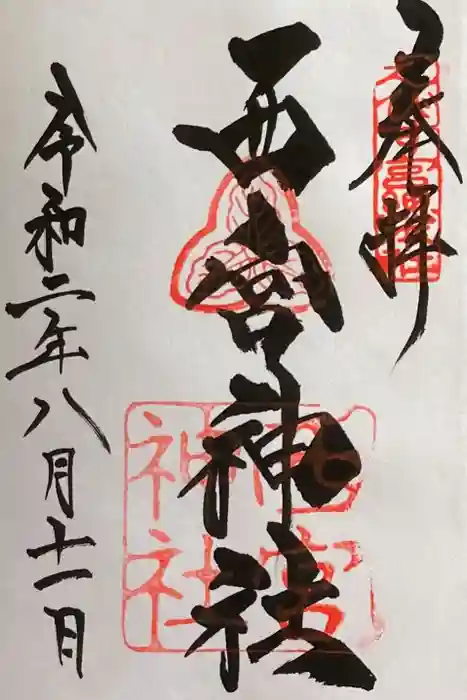 奉拝
西宮神社
西宮
神社
令和二年八月十一日